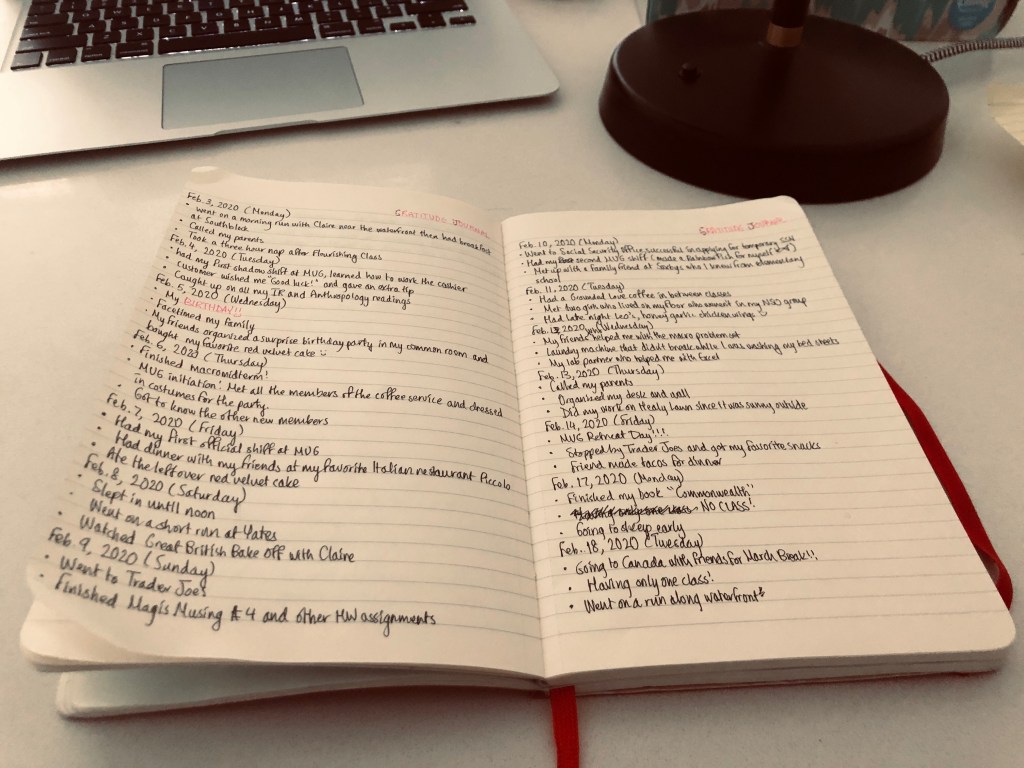 GRATITUDE JOURNAL
Feb. 3, 2020 (Monday)
• went on a morning run with Claire near the waterfront then had breakfast
at Southblock
• Called my parents
• Took a three hour nap after Flourishing Class
Feb. 4, 2020 (Tuesday)
• had my first shadow shift at MUG, learned how to work the cashier
• customer wished me "Good luck!" and gave an extra tip
• Caught up on all my IR and Anthropology readings
Feb. 5, 2020 (Wednesday)
• My BIRTHDAY!!
• Facetimed my family
• My friends organized a surprise birthday party in my common room and
bought my favorite red velvet cake
Feb. 6, 2020 (Thursday)
• Finished macro midterm!
• MUG initiation! Met all the members of the coffee service and dressed
in costumes for the party.
• Got to know the other new members
Feb. 7, 2020 (Friday)
• Had my first official shift at MUG
• Had dinner with my friends at my favorite Italian restaurant Piccolo
• Ate the leftover red velvet cake
Feb. 8, 2020 (Saturday)
• Slept in until noon
• Went on a short run at Yates
• Watched Great British Bake Off with Claire
Feb. 9, 2020 (Sunday)
• Went to Trader Joes
• Finished Magis Musing #4 and other HW assignments
GRATITUDE JOURNAL
Feb. 10, 2020 (Monday)
• Went to Social Security office, successful in applying for temporary SSN
• Had my second MUG shift (made a Rainbow Fish for myself)
• Met up with a family friend at Saxbys who I know from elementary
school
Feb. 11, 2020 (Tuesday)
• Had a Grounded Love coffee in between classes
• Met two girls who lived on my floor who weren't in my NSO group
• Had late night Leo's, honey garlic chicken wings
Feb. 12, 2020 (Wednesday)
• My friends helped me with the macro problem set
• Laundry machine that didn't break while I was washing my bed sheets
• My lab partner who helped me with Excel
Feb. 13, 2020 (Thursday)
• Called my parents
• Organised my desk and wall
• Did my work on Healy Lawn since it was sunny outside
Feb. 14, 2020 (Friday)
• MUG Retreat Day!!!
• Stopped by Trader Joes and got my favorite snacks
• Friend made tacos for dinner
Feb. 17, 2020 (Monday)
• Finished my book "Commonwealth"
• Having only one class NO CLASS!
• Going to sleep early
Feb. 18, 2020 (Tuesday)
• Going to Canada with friends for March Break!!
• Having only one class!
• Went on a run along waterfront